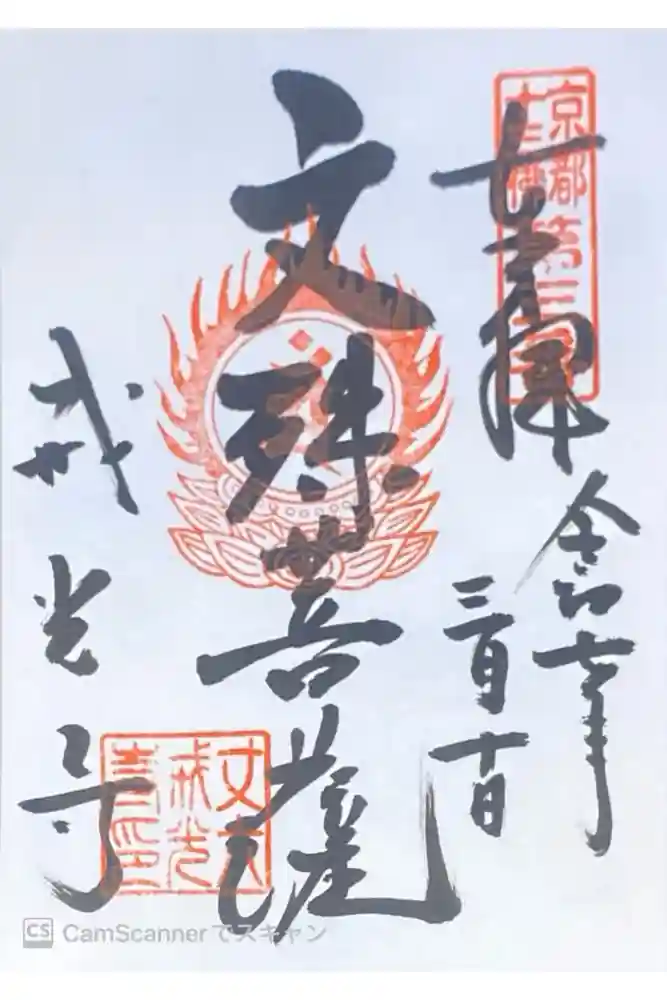 京都
十三佛
第三番
奉拝
令和七年
三月十日
文殊菩薩
戒光寺
丈六
戒光
寺印
CS CamScannerでスキャン